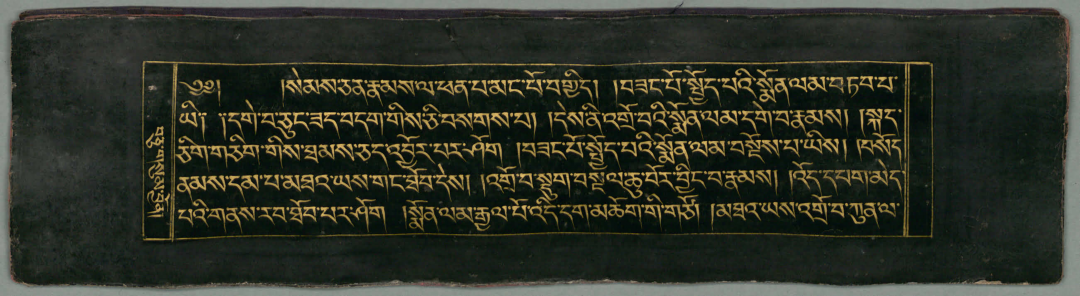 ༄༅། །སེམས་ཅན་རྣམས་ལ་ཕན་པ་མང་པོ་བགྱིད། །བཟང་པོ་སྤྱོད་པའི་སྨོན་ལམ་བཏབ་པ་
ཡི༑ ༑དགེ་བ་ཅུང་ཟད་བདག་གིས་ཅི་བསགས་པ། །དེས་ནི་འགྲོ་བའི་སྨོན་ལམ་དགེ་བ་རྣམས། །སྐད་
ཅིག་གཅིག་གིས་ཐམས་ཅད་འབྱོར་པར་ཤོག །བཟང་པོ་སྤྱོད་པའི་སྨོན་ལམ་བསྔོས་པ་ཡིས། །བསོད་
ནམས་དམ་པ་མཐའ་ཡས་གང་ཐོབ་དེས། །འགྲོ་བ་སྡུག་བསྔལ་ཆུ་བོར་བྱིང་བ་རྣམས། །འོད་དཔག་མེད་
པའི་གནས་རབ་ཐོབ་པར་ཤོག །སྨོན་ལམ་རྒྱལ་པོ་འདི་དག་མཆོག་གི་གཙོ། །མཐའ་ཡས་འགྲོ་བ་ཀུན་ལ་